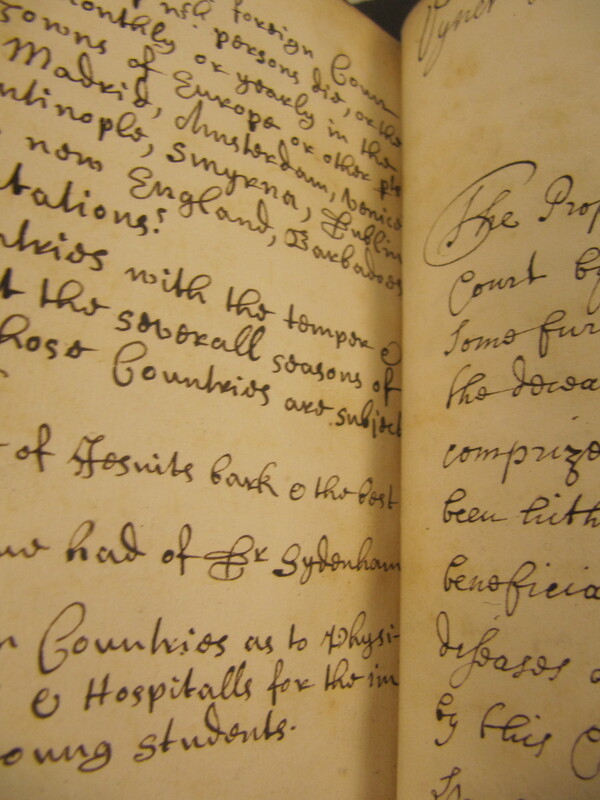 wch foreign Coun
monthly persons die, or the
Towns or yearly in the
of Europe or other pts
Madrid, Amsterdam, Venice
ntinople, Smyrna, Dublin
new England, Barbadoes
tations?
ntries with the temper &
t the severall seasons of
hose Countries are subject
of Jesuits bark & the best
we had of Dr Sydenham
n Countries as to Physi-
& Hospitalls for the im
oung students.
The Prop
Court by
Some fur
the decea
comprize
been hith
beneficia
diseases
by this C